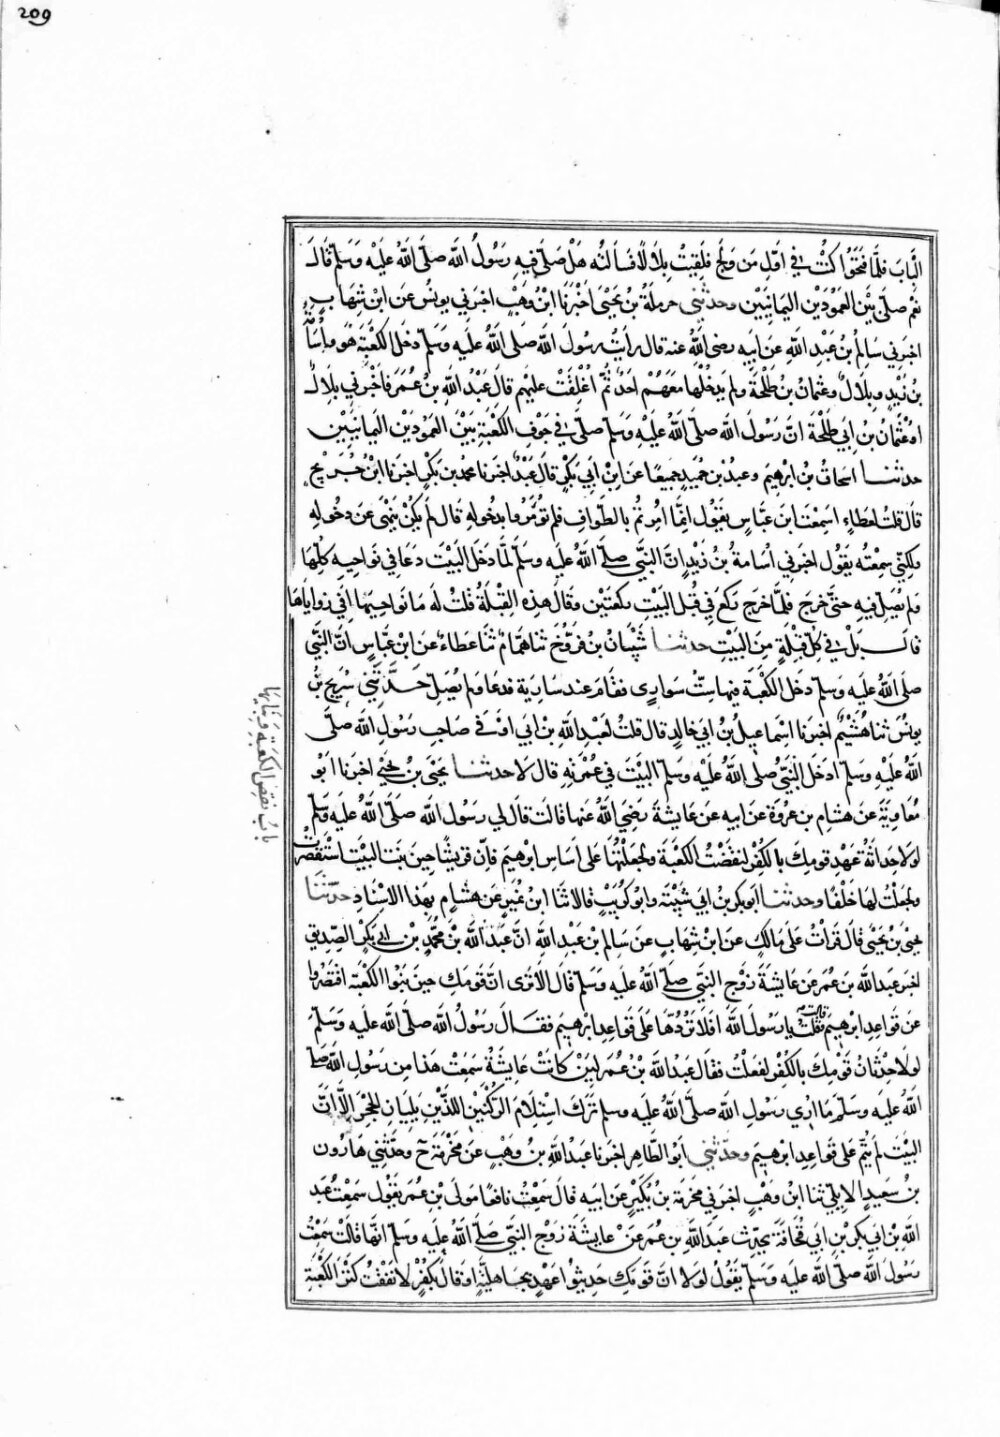 209
الباب فلما فتحوا كنت في اول من ولج فلقيت بلالا فسالته هل صلى فيه رسول الله صلى الله عليه وسلم قال
نعم صلى بين العمودين اليمانيين وحدثني حرملة بن يحيى اخبرنا ابن وهب اخبرني يونس عن ابن شهاب
اخبرني سالم بن عبد الله عن ابيه رضي الله عنه قال رايت رسول الله صلى الله عليه وسلم دخل الكعبة هو واسامة
بن زيد وبلال وعثمان بن طلحة ولم يدخلها معهم احد ثم اغلقت عليهم قال عبد الله بن عمر فاخبرني بلال
او عثمان بن ابي طلحة ان رسول الله صلى الله عليه وسلم صلى في جوف الكعبة بين العمودين اليمانيين
حدثنا اسحاق بن ابرهيم وعبد بن حميد جميعا عن ابن ابي بكر قال عبد اخبرنا محمد بن بكر اخبرنا ابن جريج
قال قلت لعطاء اسمعت ابن عباس يقول انما امرتم بالطواف فلم تؤمروا بدخوله قال لم يكن ينهى عن دخوله
ولكني سمعته يقول اخبرني اسامة بن زيد ان النبي صلى الله عليه وسلم لما دخل البيت دعا في نواحيه كلها
ولم يصل فيه حتى خرج فلما خرج ركع في قبل البيت ركعتين وقال هذه القبلة قلت له ما نواحيها افي زواياها
قال بل في كل قبلة من البيت حدثنا شيبان بن فروخ ثنا همام ثنا عطاء عن ابن عباس ان النبي
صلى الله عليه وسلم دخل الكعبة فيها ست سواري فقام عند سارية فدعا ولم يصل حدثني سريج بن
يونس ثنا هشيم اخبرنا اسماعيل بن ابي خالد قال قلت لعبد الله بن ابي اوفى صاحب رسول الله صلى
الله عليه وسلم ادخل النبي صلى الله عليه وسلم البيت في عمرته قال لا حدثنا يحيى بن يحيى اخبرنا ابو
معاوية عن هشام بن عروة عن ابيه عن عايشة رضي الله عنها قالت قال لي رسول الله صلى الله عليه وسلم
لولا حداثة عهد قومك بالكفر لنقضت الكعبة ولجعلتها على اساس ابرهيم فان قريشا حين بنت البيت استقصرت
ولجعلت لها خلفا وحدثنا ابو بكر بن ابي شيبة وابو كريب قالا ثنا ابن نمير عن هشام بهذا الاسناد حدثنا
يحيى بن يحيى قال قرات على مالك عن ابن شهاب عن سالم بن عبد الله ان عبد الله بن محمد بن ابي بكر الصديق
اخبر عبد الله بن عمر عن عايشة زوج النبي صلى الله عليه وسلم قال الم ترى ان قومك حين بنوا الكعبة اقتصروا
عن قواعد ابرهيم قالت فقلت يا رسول الله افلا تردها على قواعد ابرهيم فقال رسول الله صلى الله عليه وسلم
لولا حدثان قومك بالكفر لفعلت فقال عبد الله بن عمر لين كانت عايشة سمعت هذا من رسول الله صلى
الله عليه وسلم ما اري رسول الله صلى الله عليه وسلم ترك استلام الركنين اللذين يليان للحجر الا ان
البيت لم يتم على قواعد ابرهيم وحدثني ابو الطاهر اخبرنا عبد الله بن وهب عن مخرمة ح وحدثني هارون
بن سعيد الايلي ثنا ابن وهب اخبرني مخرمة بن بكير عن ابيه قال سمعت نافعا مولى بن عمر يقول سمعت عبد
الله بن ابي بكر بن ابي قحافة يحدث عبد الله بن عمر عن عايشة زوج النبي صلى الله عليه وسلم انها قالت سمعت
رسول الله صلى الله عليه وسلم يقول لولا ان قومك حديثوا عهد بجاهلية او قال بكفر لانفقت كنز الكعبة
باب نقض الكعبة وبنايها